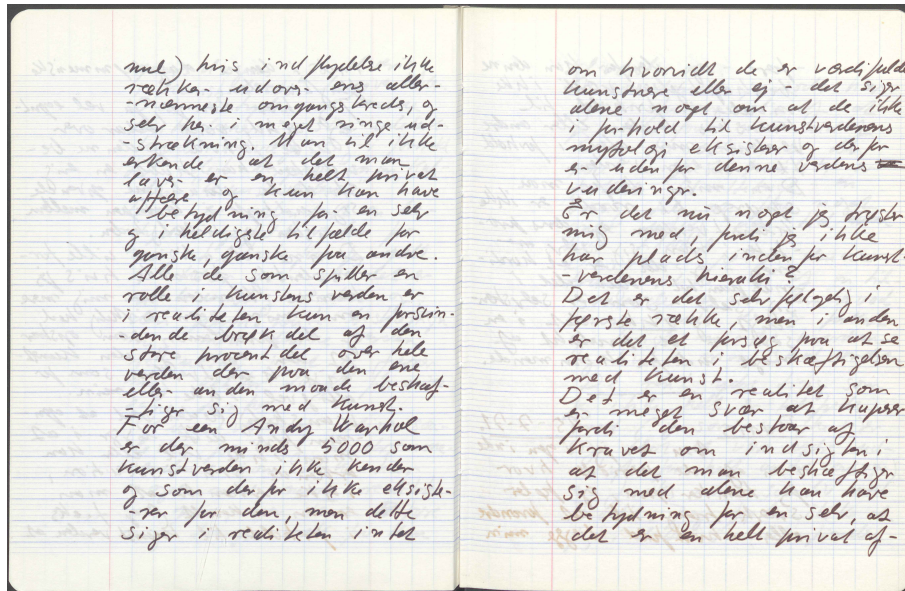 nul) hvis indflydelse ikke
rækker udover ens aller-
-nærmeste omgangskreds, og
selv her i meget ringe ud-
-strækning. Man vil ikke
erkende at det man
laver er en helt privat
affære og kun kan have
betydning for en selv
og i heldigste tilfælde for
ganske, ganske få andre.
Alle de som spiller en
rolle i kunstens verden er
i realiteten kun en forsvin-
-dende brøkdel af den
store procentdel over hele
verden der på den ene
eller anden måde beskæf-
-tiger sig med kunst.
For een Andy Warhol
er der minds 5000 som
kunstverden ikke kender
og som derfor ikke eksiste-
-rer for den, men dette
siger i realiteten intet
om hvorvidt de er værdifulde
kunstnere eller ej - det siger
alene noget om at de ikke
i forhold til kunstverdenens
mytologi eksisterer og derfor
er udenfor denne verdens
vurderinger.
Er det nu noget jeg trøster
mig med, fordi jeg ikke
har plads indenfor kunst-
-verdenens hieraki?
Det er det selvfølgelig i
første række, men i anden
er det et forsøg på at se
realiteten i beskæftigelsen
med kunst.
Det er en realitet som
er meget svær at kapere
fordi den består af
kravet om indsigten i
at det man beskæftiger
sig med alene kan have
betydning for en selv, at
det er en helt privat af-